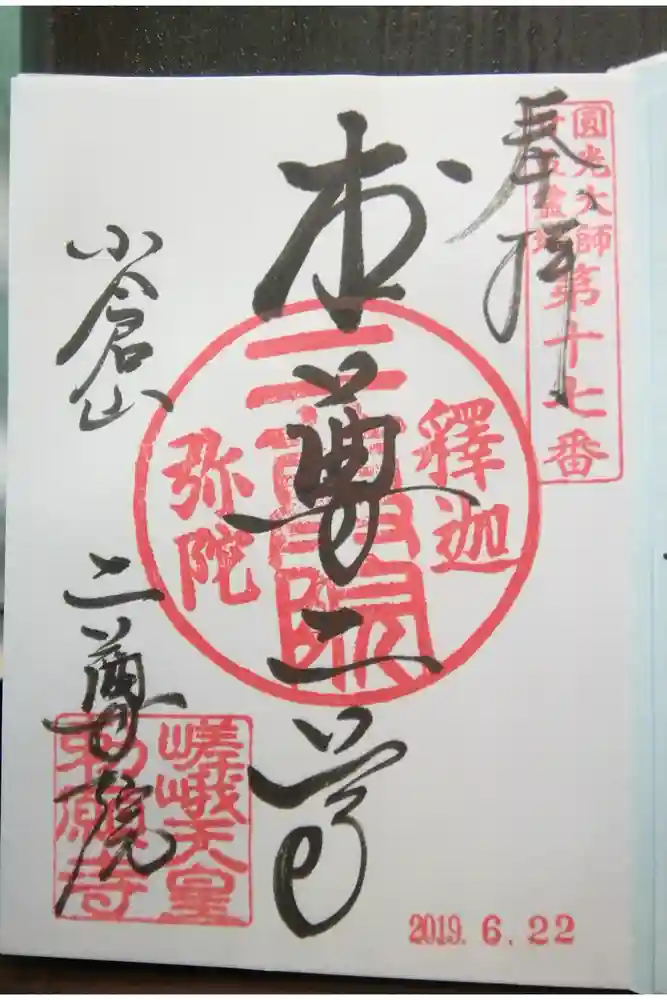 奉拝
圓光大師
第十七番
本尊二尊
釋迦
二尊院
弥陀
小倉山
二尊院
嵯峨天皇
勅願寺
2019. 6. 22